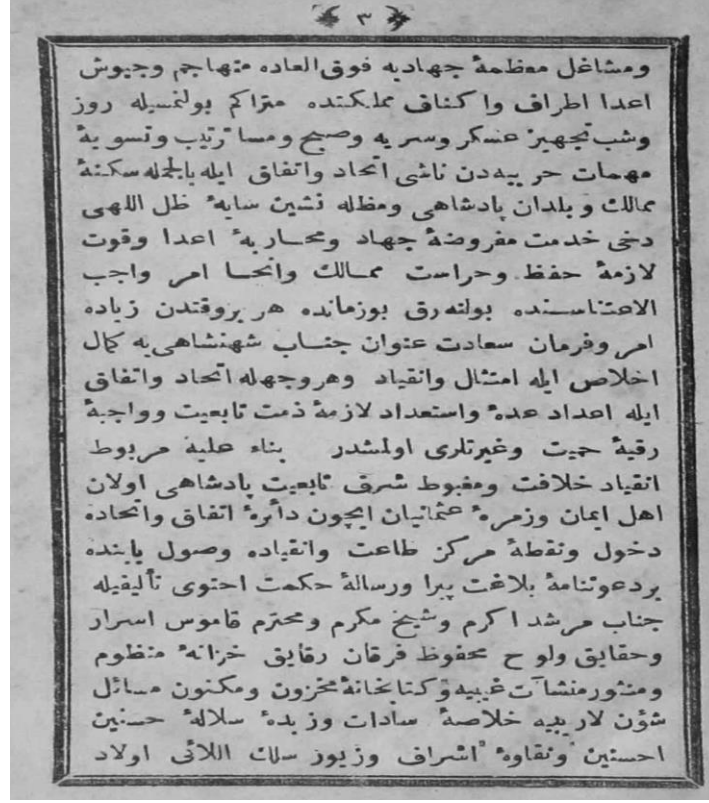 ٣
ومشاغل معظمهٔ جهادیه فوق العاده متهاجم وجیوش
اعدا اطراف واکناف مملکتده متراکم بولنمسیله روز
وشب تجهیز عسکر وسریه وصبح ومسا ترتیب وتسویهٔ
مهمات حربیه‌دن ناشی اتحاد واتفاق ایله بالجمله سکنهٔ
ممالك وبلدان پادشاهی ومظله نشین سایهٔ ظل اللهی
دخی خدمت مفروضهٔ جهاد ومحاربهٔ اعدا وقوت
لازمهٔ حفظ وحراست ممالك وانحا امر واجب
الاعتناسنده بولنه‌رق بوزمانده هر بروقتدن زیاده
امر وفرمان سعادت عنوان جناب شهنشاهی‌یه کمال
اخلاص ایله امتثال وانقیاد وهر وجهله اتحاد واتفاق
ایله اعداد عده واستعداد لازمهٔ ذمت تابعیت وواجبهٔ
رقبهٔ حمیت وغیرتلری اولمشدر بناء علیه مربوط
انقیاد خلافت ومغبوط شرف تابعیت پادشاهی اولان
اهل ایمان وزمرهٔ عثمانیان ایچون دائرهٔ اتفاق واتحاده
دخول ونقطهٔ مرکز طاعت وانقیاده وصول بابنده
بردعوتنامهٔ بلاغت پیرا ورسالهٔ حکمت احتوی تألیفیله
جناب مرشد اکرم وشیخ مکرم ومحترم قاموس اسرار
وحقایق ولوح محفوظ فرقان رقایق خزانهٔ منظوم
ومنثور منشآت غیبیه وکتابخانهٔ مخزون ومکنون مسائل
شؤن لاریبیه خلاصهٔ سادات وزبدهٔ سلالهٔ حسنین
احسنین ونقاوهٔ اشراف وزیور سلك اللآئی اولاد